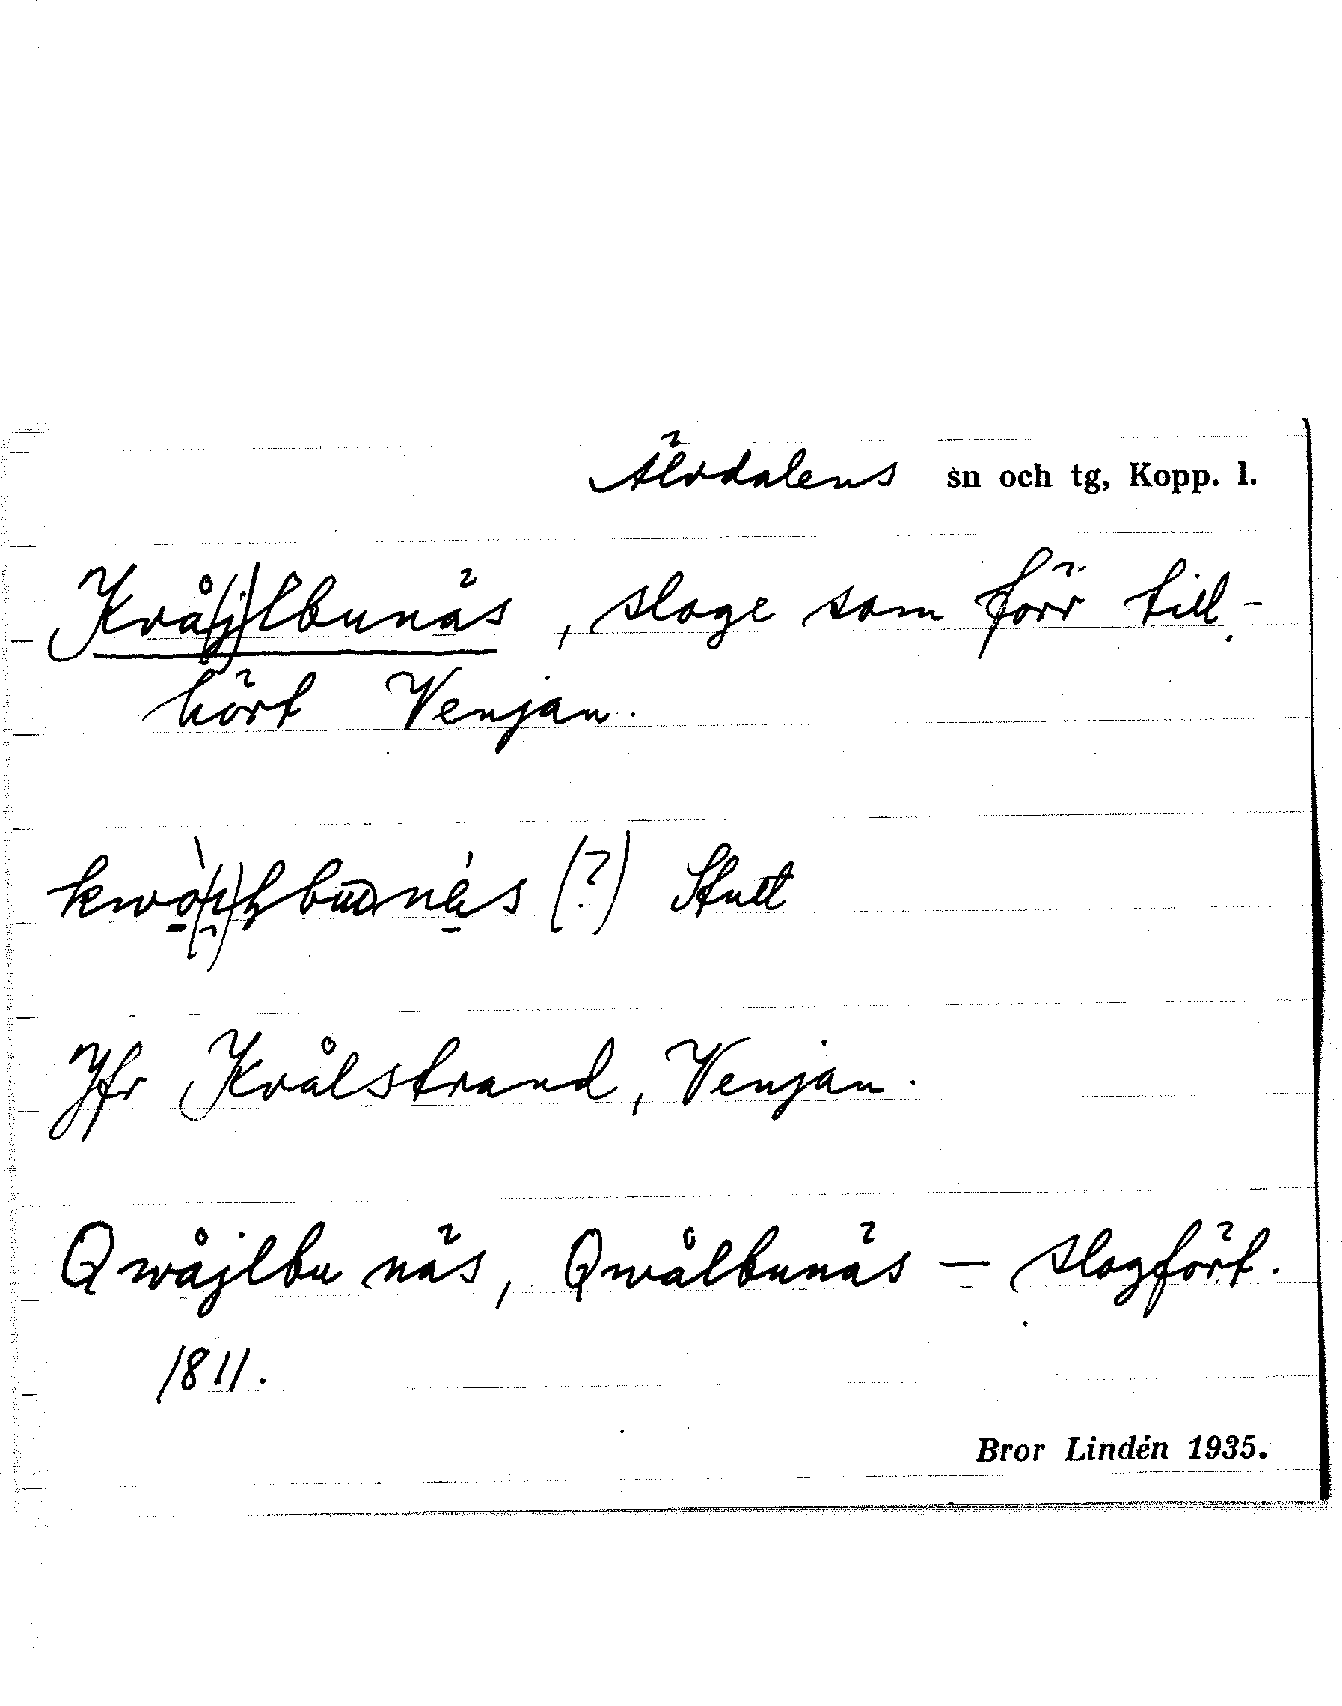 Älvdalens sn och tg, Kopp. l.
Kvå(j)lbunäs, sloge som förr till-
hört Venjan.
(?) Stutt
Jfr Kvålstrand, Venjan.
Qwåjlbu näs, Qwålbunäs — slogfört.
1811.
Bror Lindén 1935.